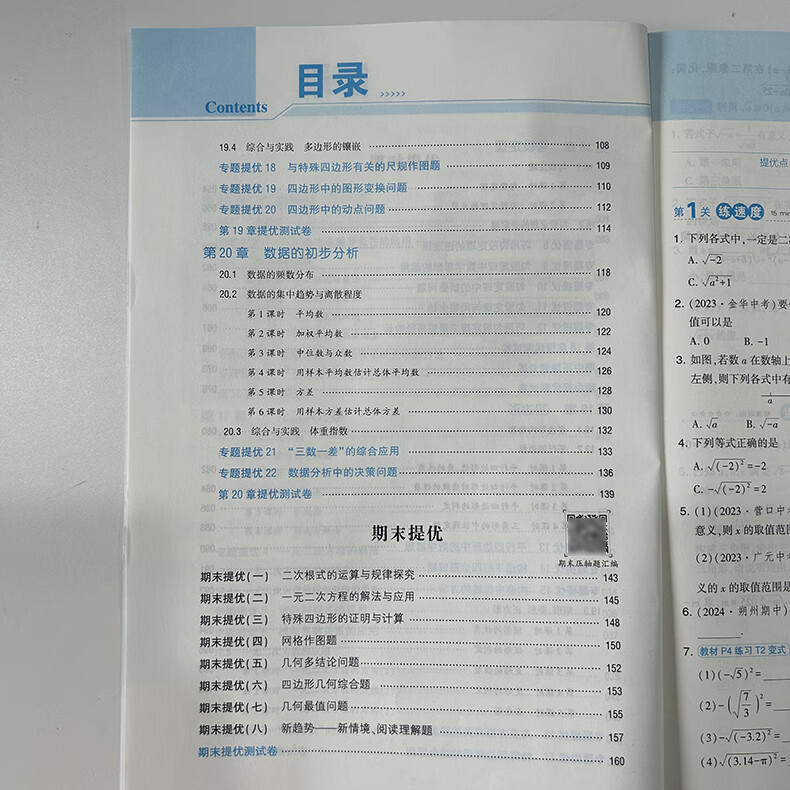 目录
Contents
19.4 综合与实践 多边形的镶嵌 108
专题提优18 与特殊四边形有关的尺规作图题 109
专题提优19 四边形中的图形变换问题 110
专题提优20 四边形中的动点问题 112
第19章提优测试卷 114
第20章 数据的初步分析
20.1 数据的频数分布 118
20.2 数据的集中趋势与离散程度
第1课时 平均数 120
第2课时 加权平均数 122
第3课时 中位数与众数 124
第4课时 用样本平均数估计总体平均数 126
第5课时 方差 128
第6课时 用样本方差估计总体方差 130
20.3 综合与实践 体重指数 132
专题提优21 “三数一差”的综合应用 133
专题提优22 数据分析中的决策问题 136
第20章提优测试卷 139
期末提优
期末压轴题汇编
期末提优(一) 二次根式的运算与规律探究 143
期末提优(二) 一元二次方程的解法与应用 145
期末提优(三) 特殊四边形的证明与计算 148
期末提优(四) 网格作图题 150
期末提优(五) 几何多结论问题 152
期末提优(六) 四边形几何综合题 153
期末提优(七) 几何最值问题 155
期末提优(八) 新趋势——新情境、阅读理解题 157
期末提优测试卷 160
提优点
第1关 练速度 15 min
1. 下列各式中,一定是二
A. √-2
C. √a²+1
2. (2023·金华中考)要
值可以是
A. 0 B. -1
3. 如图,若数a在数轴上
左侧,则下列各式中有
a
A. √a B. √-a
4. 下列等式正确的是
A. √(-2)²=-2
C. -√(-2)²=2
5. (1)(2023·营口中考
意义,则x的取值范围
(2)(2023·广元中考
义的x的取值范围是
6. (2024·朔州期中)
7. 教材P4练习T2变式
(1)(-√5)²=
(2)-(√7/3)²=
(3)-√(-3.2)²=
(4)√(3.14-π)²=